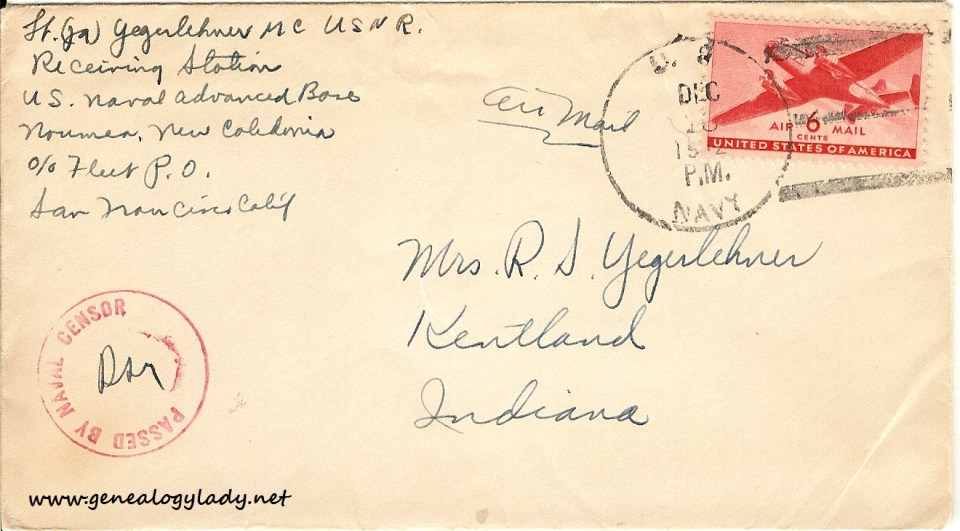 Lt. (jg) Yegerlehner MC USNR.
Receiving Station
U.S. Naval Advanced Base
Noumea, New Caledonia
c/o Fleet P.O.
San Francisco Calif
Air Mail
U. S.
DEC
P.M.
NAVY
AIR 6 MAIL
CENTS
UNITED STATES OF AMERICA
Mrs. R. S. Yegerlehner
Kentland
Indiana
PASSED BY NAVAL CENSOR
RSY
www.genealogylady.net